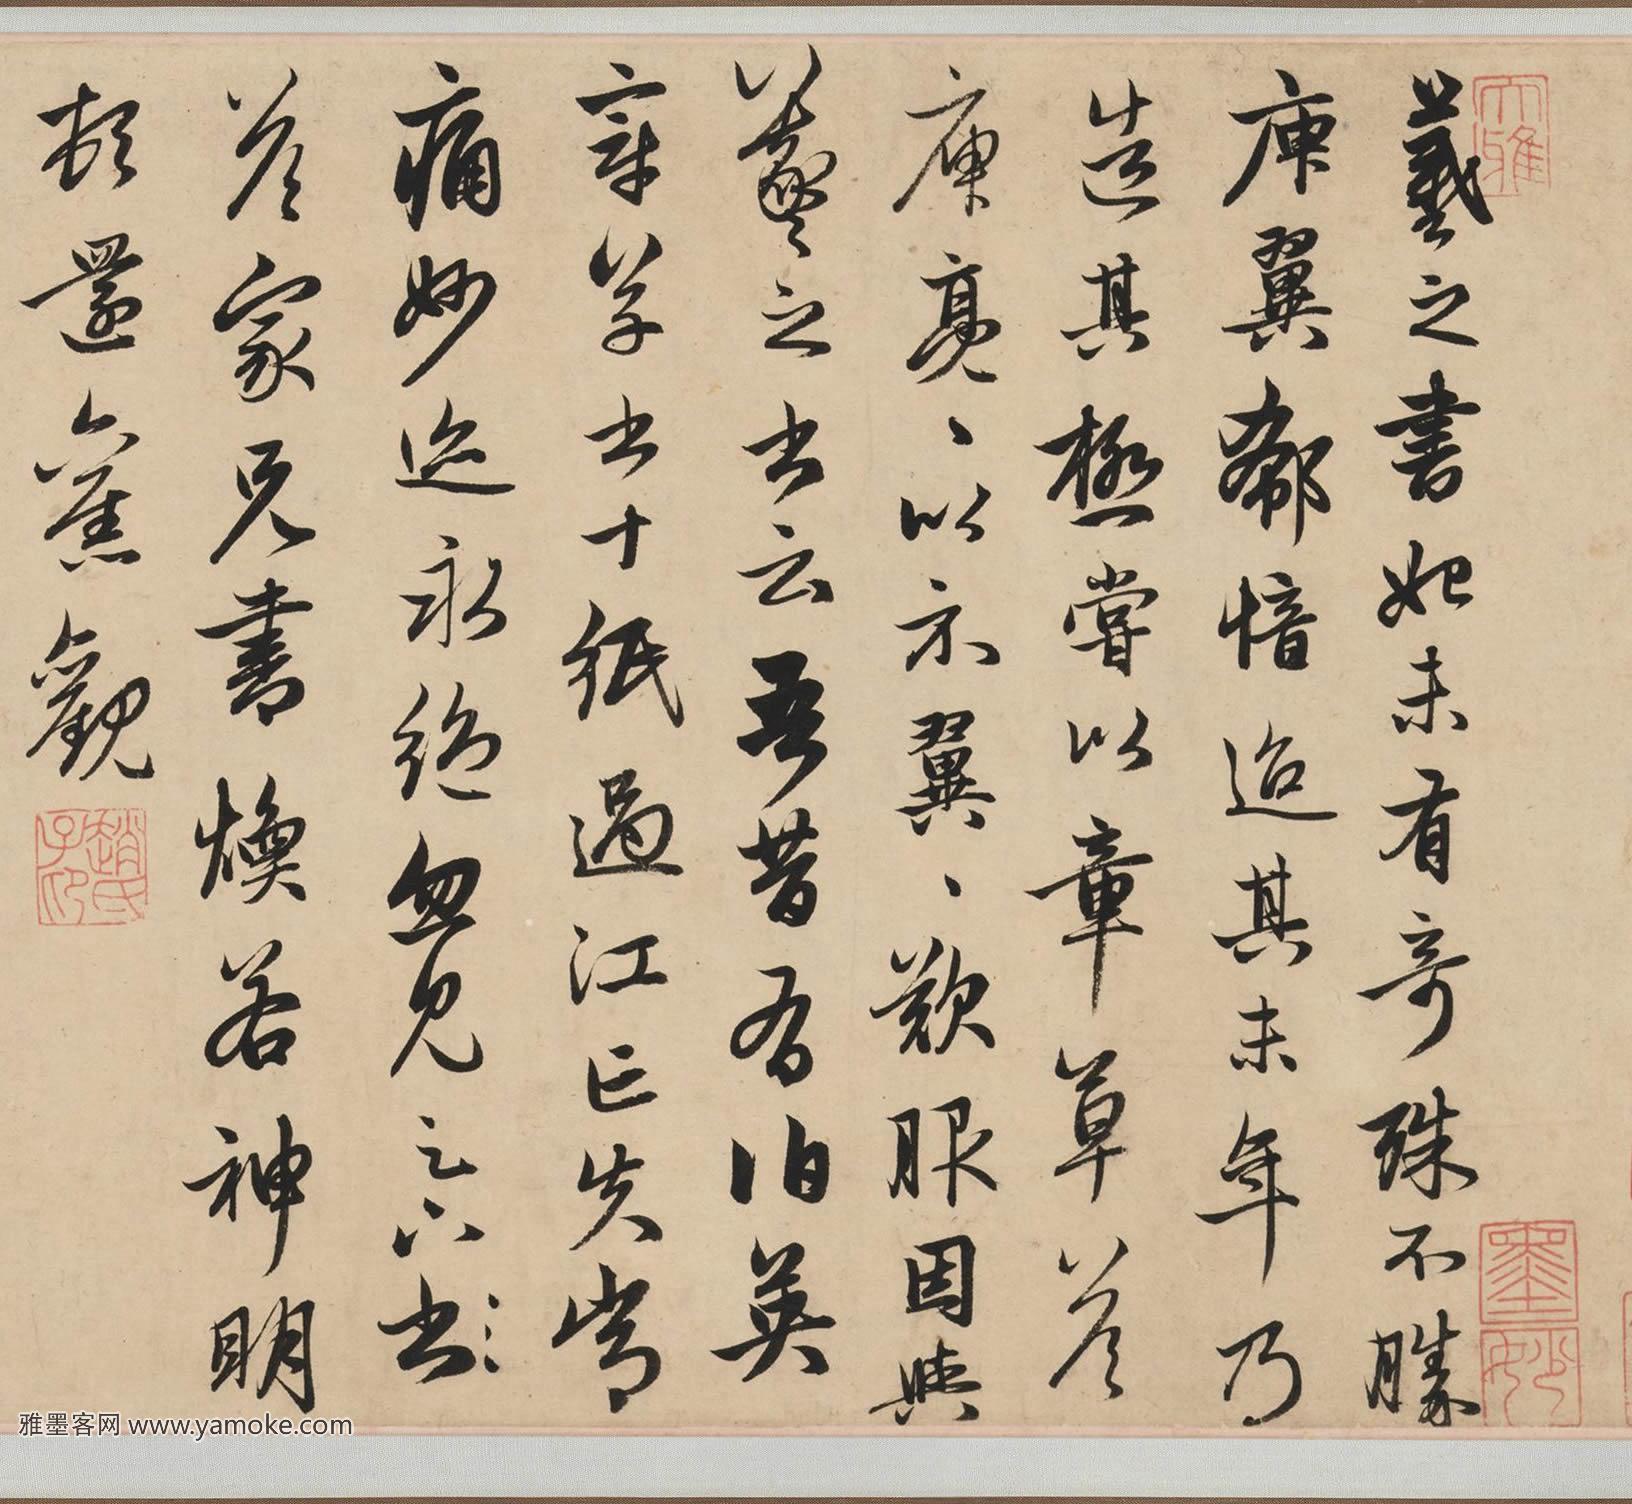 羲之書始未有奇殊不勝
庾翼郗愔迨其末年乃
造其極嘗以章草答
庾亮亮以示翼翼歎服因與
羲之書云吾昔有伯英
章草書十紙過江亡失常
痛妙迹永絕忽見足下書
答家兄書煥若神明
頓還舊觀
大雅
墨妙
趙氏子印
雅墨客网 www.yamoke.com